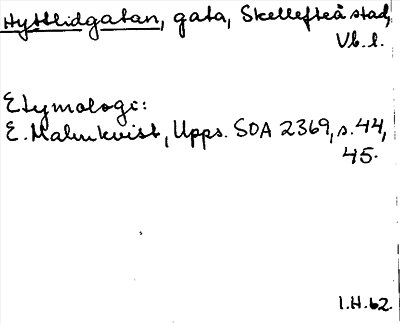 Hyttlidgatan, gata, Skellefteå stad,
Vb. l.
Etymologi:
E. Malmkvist, Upps. SOA 2369, s. 44,
45.
I.H.62.